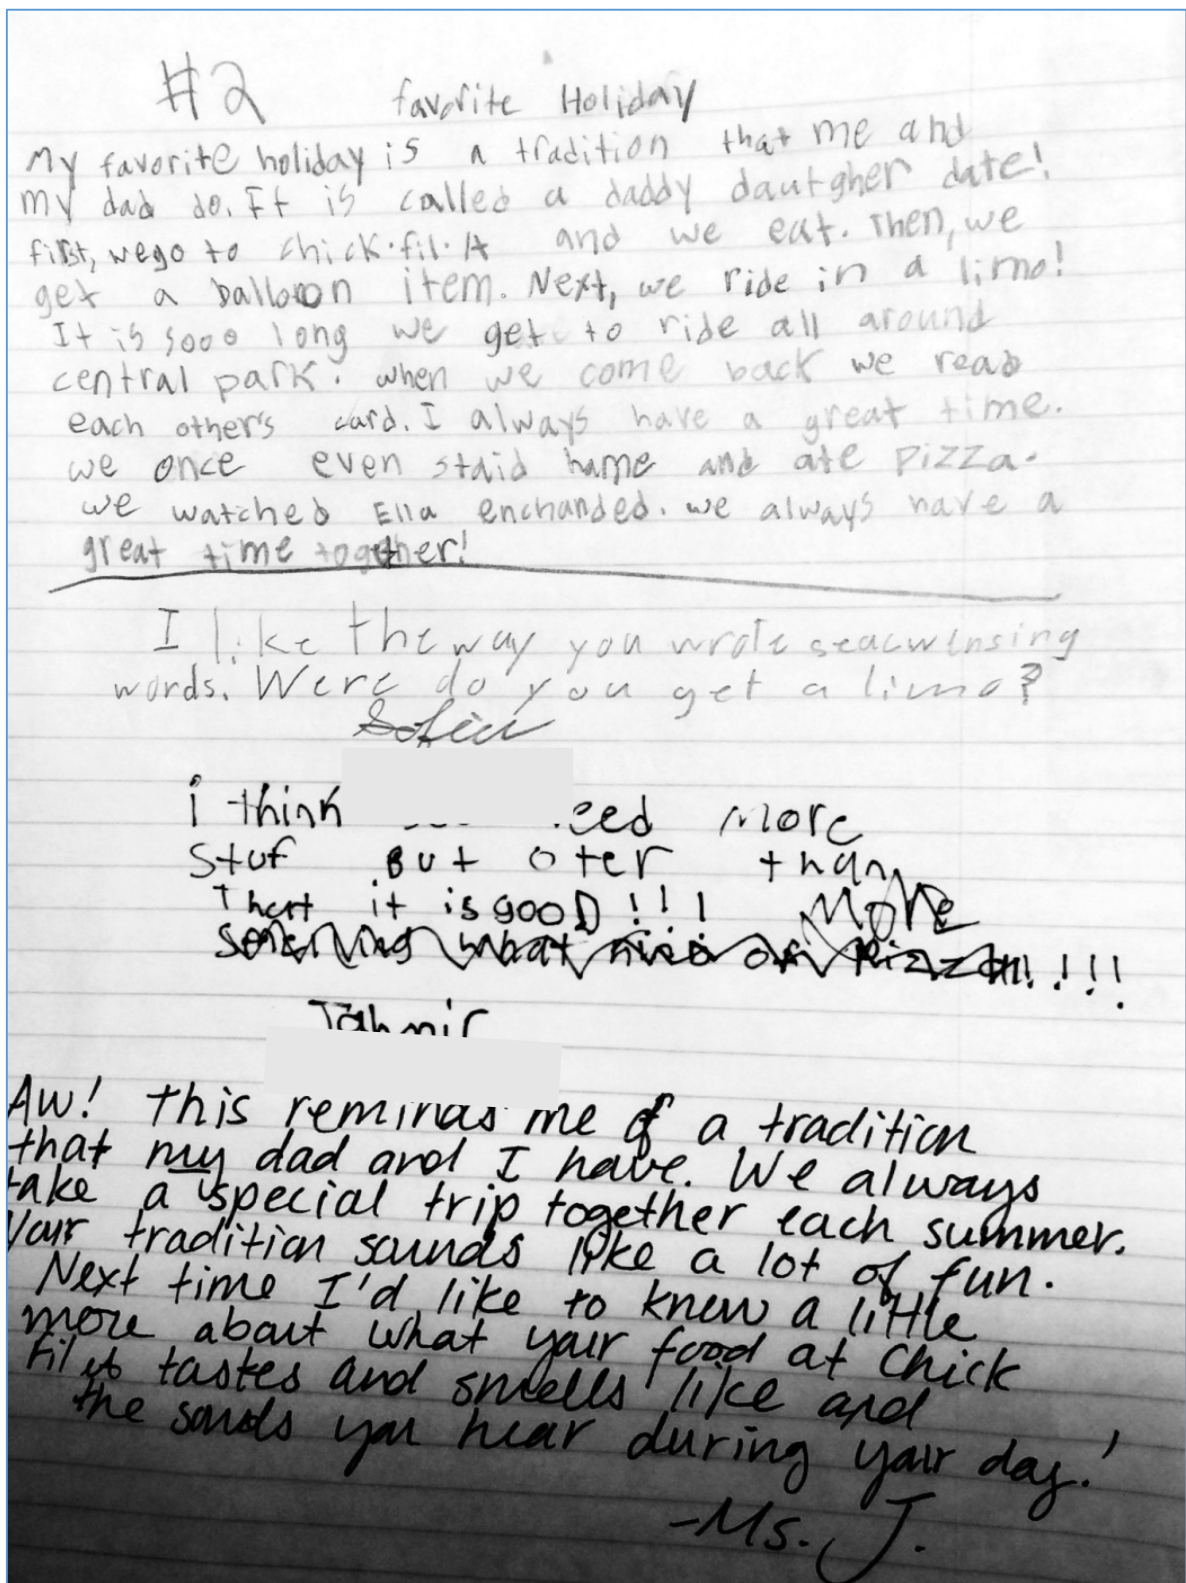 #2 favorite Holiday
My favorite holiday is a tradition that me and
my dad do. It is called a daddy dautgher date!
first, we go to chick-fil-A and we eat. Then, we
get a balloon item. Next, we ride in a limo!
It is sooo long we get to ride all around
central park. when we come back we read
each other's card. I always have a great time.
we once even staid home and ate pizza.
we watched Ella enchanded. we always have a
great time together!
I like the way you wrote seacwensing
words. Were do you get a limo?
Sofia
i think need more
stuf But oter than
That it is gooD!!! MoRe
what of Pizza!!!!
Tahmir
Aw! This reminds me of a tradition
that my dad and I have. We always
take a special trip together each summer.
Your tradition sounds like a lot of fun.
Next time I'd like to know a little
more about what your food at Chick
Fil A tastes and smells like and
the sounds you hear during your day!
-Ms. J.